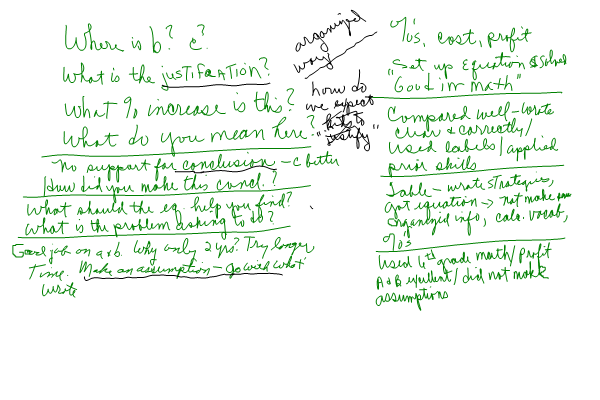 Where is b? c?
What is the justification?
What % increase is this?
What do you mean here?
No support for conclusion - c better
How did you make this concl.?
What should the eq. help you find?
What is the problem asking to do?
Good job on a & b. Why only 2 yrs? Try longer
Time. Make an assumption - go with what
wrote
organized
way
how do
we expect
kids to
"justify"
%s, cost, profit
"Set up Equation & solved
"Good in math"
Compared well - wrote
clear & correctly/
used labels/applied
prior skills
Table - wrote strategies,
got equation → not make
organized info, calc. vocab,
%s
Used 6th grade math/profit
A & B excellent/did not make
assumptions